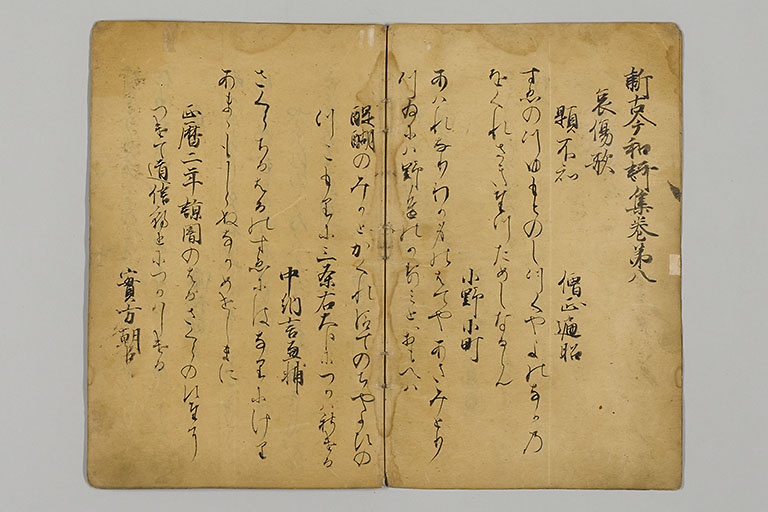 新古今和歌集巻第八
哀傷歌
題不知　僧正遍昭
すゑのつゆもとのしつくやよのなかの
をくれさきたつためしなるらん
小野小町
あはれなりわか身のはてやあさみとり
つゐには野邊のかすみとおもへは
醍醐のみかとかくれ給てのちやよひの
つこもりに三条右大臣につかはしける
中納言兼輔
さくらちるはるのすゑにはなりにけり
あまゝもしらぬなかめせしまに
正暦二年諒闇のはるさくらのえたに
つけて道信朝臣につかはしける
實方朝臣